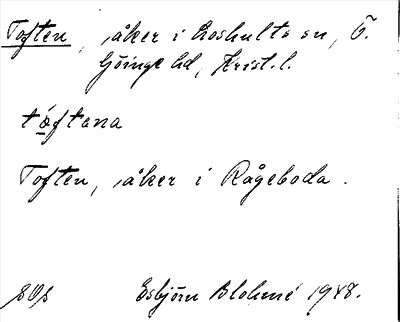 Toften, åker i Loshults sn, Ö.
Göinge hd, Krist. l.
tóftena
Toften, åker i Rågeboda.
Esbjörn Blohmé 1948.